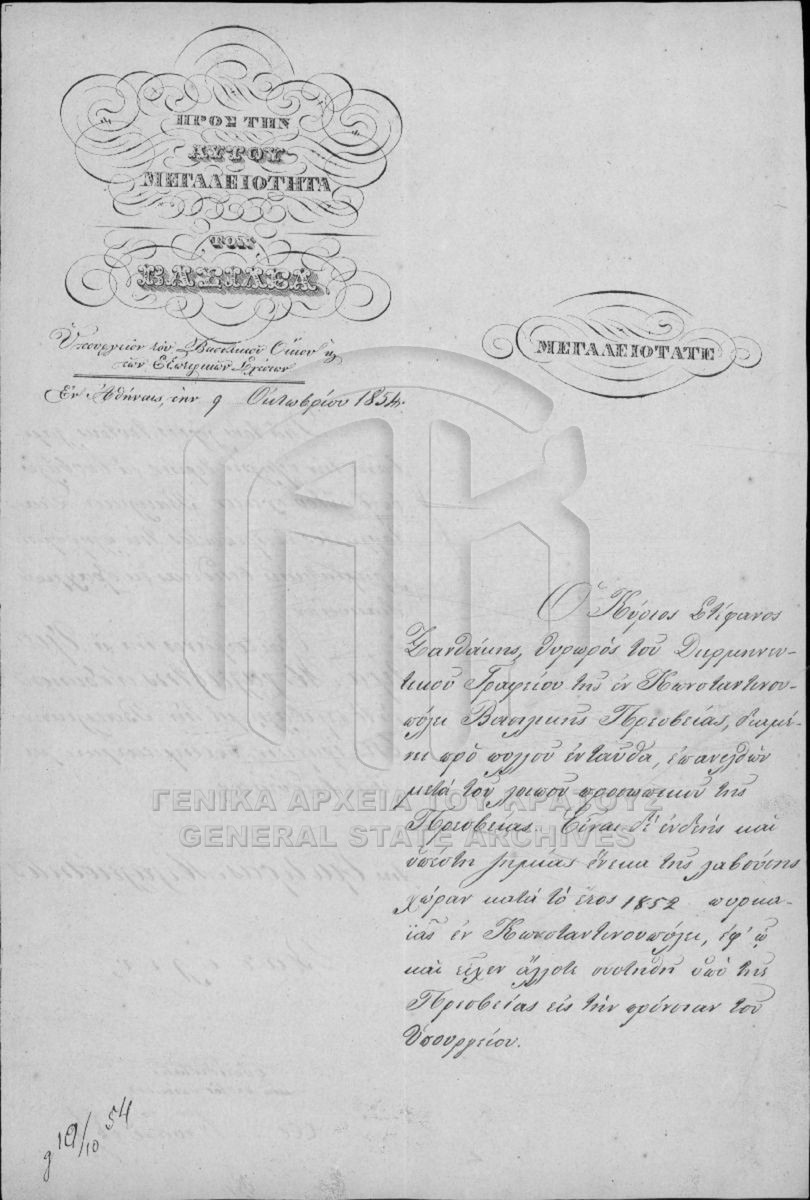 ΠΡΟΣ ΤΗΝ
ΑΥΤΟΥ
ΜΕΓΑΛΕΙΟΤΗΤΑ
ΤΟΝ
ΒΑΣΙΛΕΑ
Ὑπουργεῖον τοῦ Βασιλικοῦ Οἴκου κ
τῶν Ἐξωτερικῶν Σχέσεων
Ἐν Ἀθήναις, τὴν 9 Ὀκτωβρίου 1854.
ΜΕΓΑΛΕΙΟΤΑΤΕ
Ὁ Κύριος Στέφανος
Ξανθάκης, θυρωρὸς τοῦ Διερμηνευ-
τικοῦ Γραφείου τῆς ἐν Κωνσταντινου-
πόλει Βασιλικῆς Πρεσβείας, διαμέ-
νει πρὸ πολλοῦ ἐνταῦθα, ἐπανελθὼν
μετὰ τοῦ λοιποῦ προσωπικοῦ τῆς
Πρεσβείας. Εἶναι δ' ἐνδεὴς καὶ
ὑπέστη ζημίας ἕνεκα τῆς λαβούσης
χώραν κατὰ τὸ ἔτος 1852 πυρκα-
ϊᾶς ἐν Κωνσταντινουπόλει, ἐφ' ᾧ
καὶ εἶχεν ἄλλοτε συστηθῆ ὑπὸ τῆς
Πρεσβείας εἰς τὴν πρόνοιαν τοῦ
Ὑπουργείου.
ΓΕΝΙΚΑ ΑΡΧΕΙΑ ΤΟΥ ΚΡΑΤΟΥΣ
GENERAL STATE ARCHIVES
19/10 54